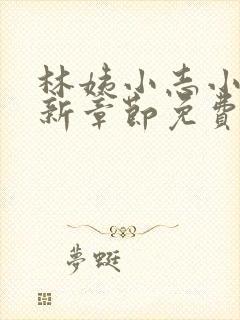 林姨小志小
新章節免費
夢蜓